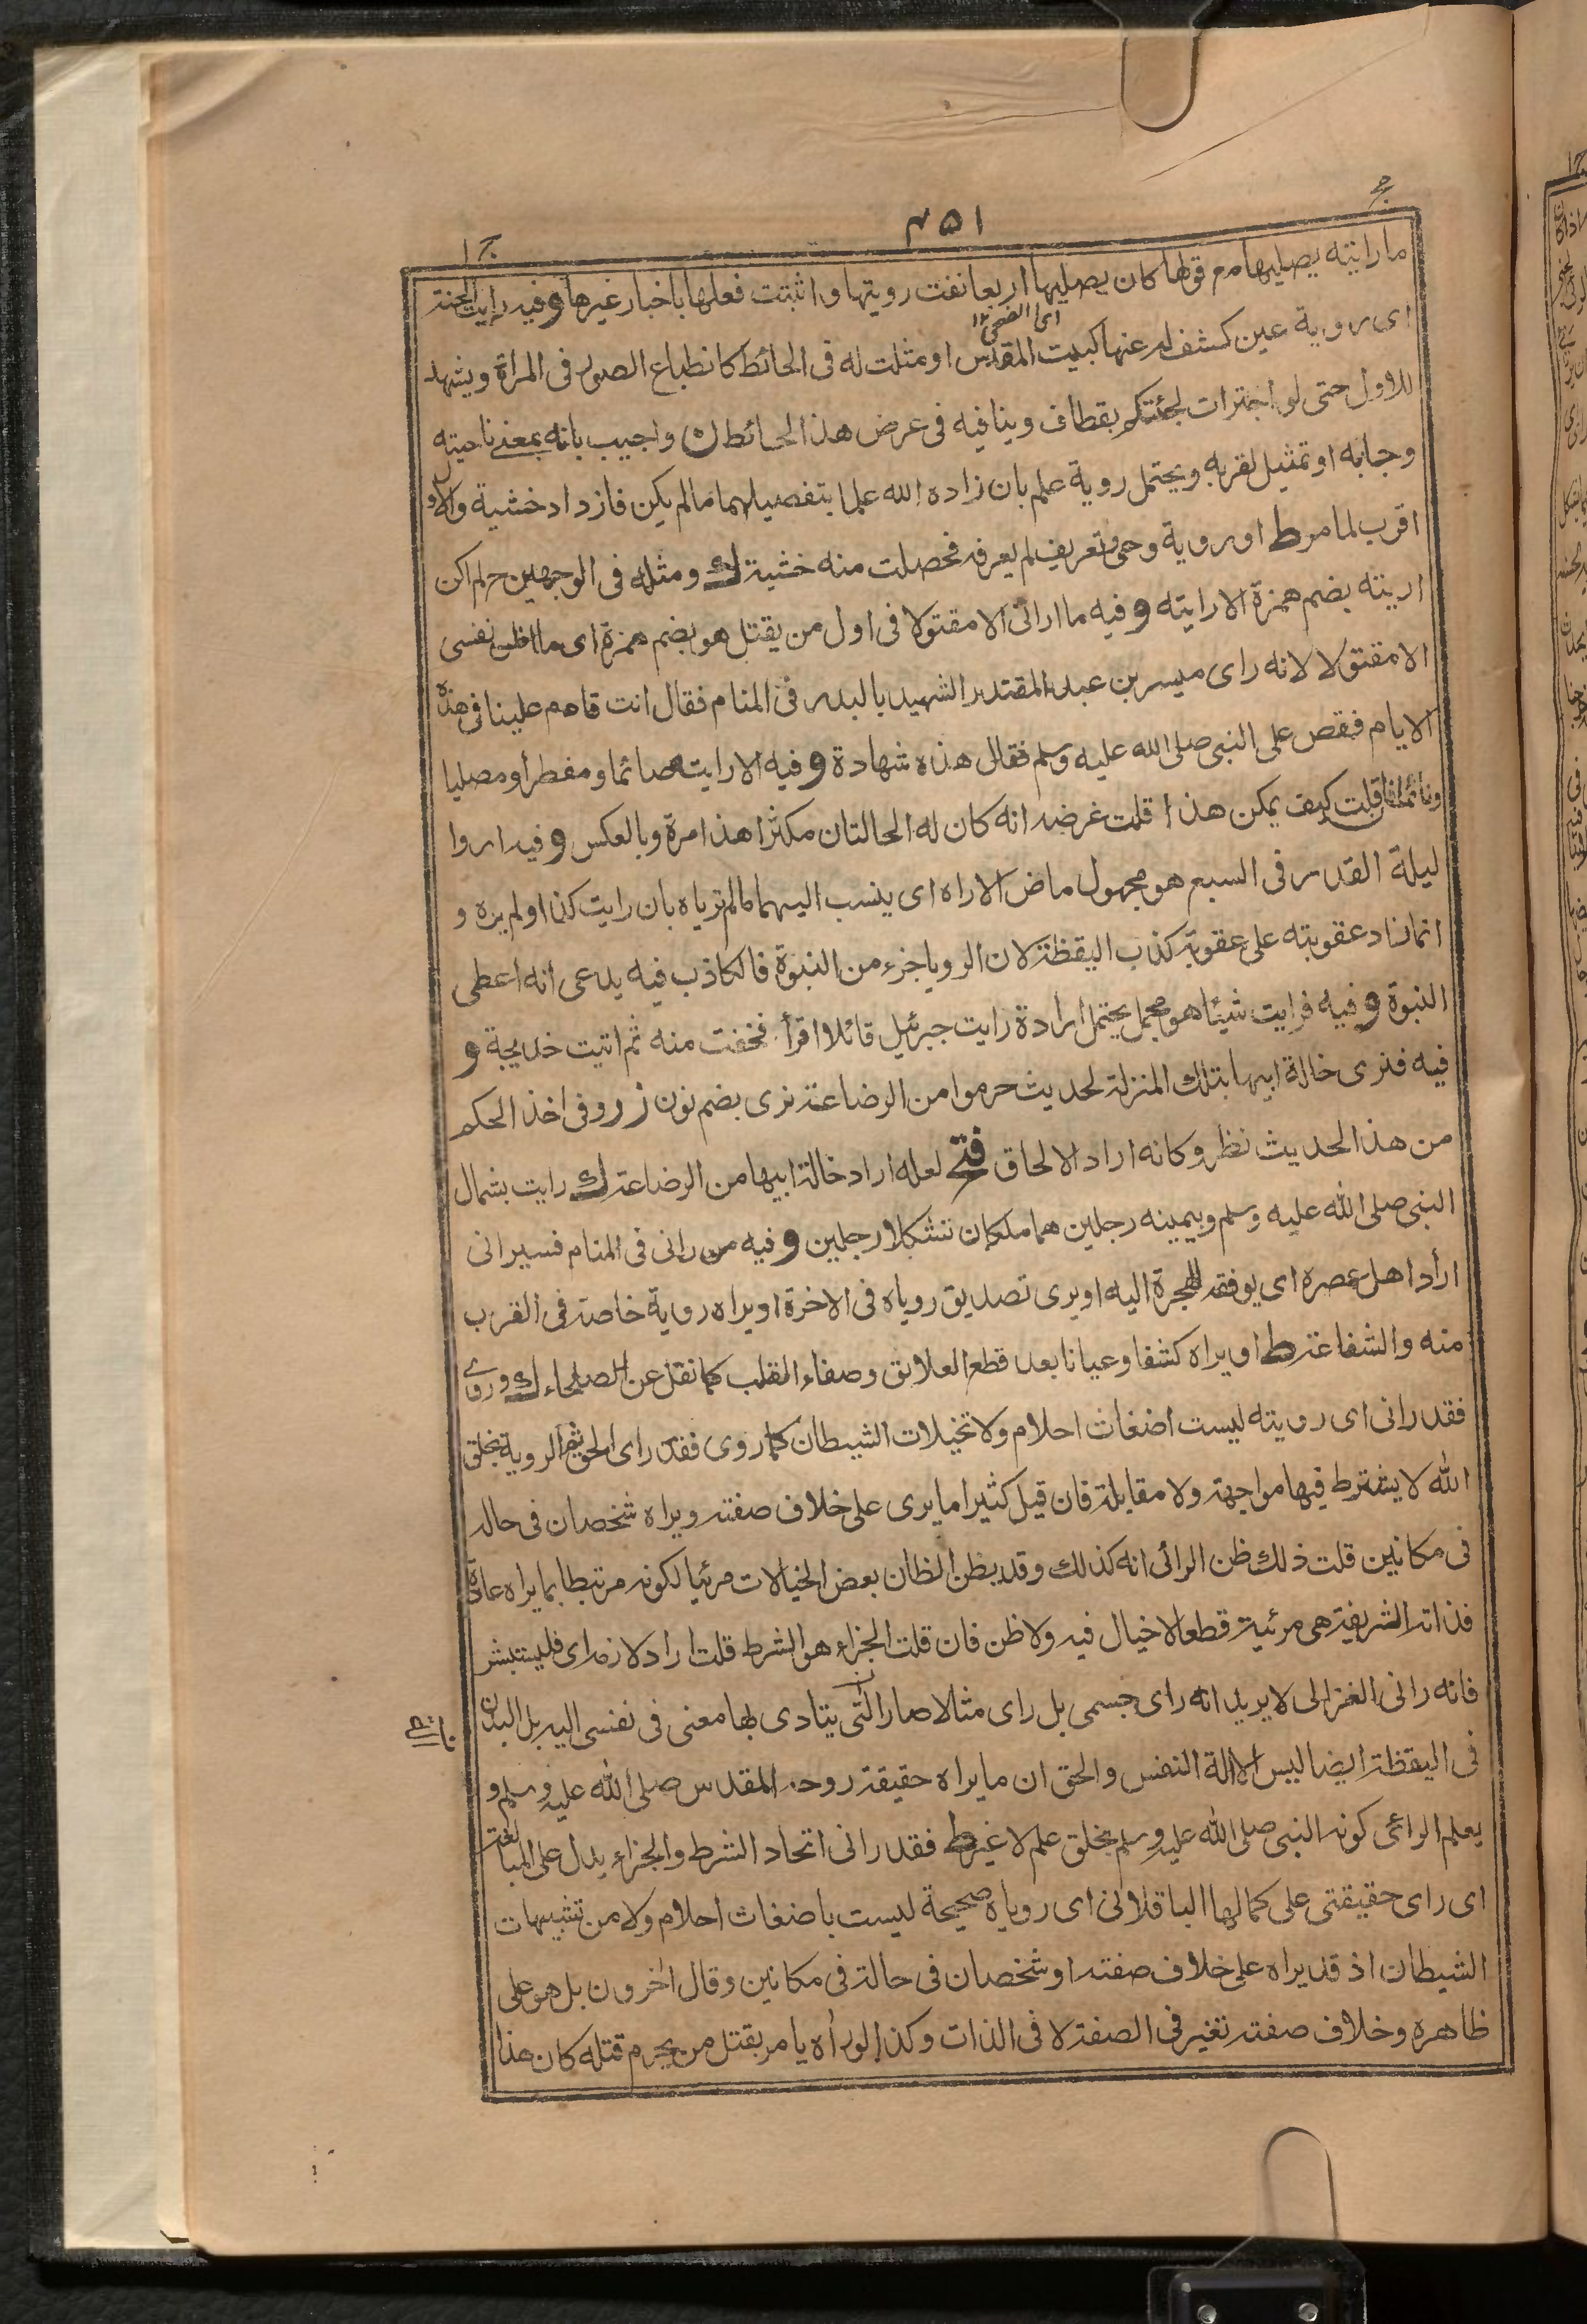 ج
٤٥١
ج ١
ما رايته يصليها مع قولها كان يصليها اربعا نفت رويتها واثبتت فعلها باخبار غيرها و فيه رايت الجنة
اى الضحى ١٢
اى روية عين كشف له عنها كبيت المقدس او مثلت له فى الحائط كانطباع الصور فى المراة ويشهد
للاول حتى لو اجترات لجئتكم بقطاف وينافيه فى عرض هذا الحائط ن واجيب بانه بمعنے ناحيته
وجابه او تمثيل لقربه ويحتمل روية علم بان زاده الله علما بتفصيلهما ما لم يكن فازداد خشية والاول
اقرب لما مر ط او روية وحى وتعريف لم يعرفه فحصلت منه خشية ك ومثله فى الوجهين ح لم اكن
اريته بضم همزة الا رايته و فيه ما ارانى الا مقتولا فى اول من يقتل هو بضم همزة اى ما اظن نفسى
الا مقتولا لانه راى ميسر بن عبد المقتدر الشهيد بالبدر فى المنام فقال انت قادم علينا فى هذه
الايام فقص على النبى صلى الله عليه وسلم فقال هذه شهادة و فيه الا رايته صائما ومفطرا ومصليا
ونائما فان قلت كيف يمكن هذا قلت غرضه انه كان له الحالتان مكثرا هذا مرة وبالعكس و فيه اروا
ليلة القدر فى السبع هو مجهول ماض الاراه اى ينسب اليهما ما لم ترياه بان رايت كذا ولم يره و
انما زاد عقوبته على عقوبة كذب اليقظة لان الرويا جزء من النبوة فالكاذب فيه يدعى انه اعطى
النبوة و فيه فرايت شيئا هو مجمل يحتمل ارادة رايت جبرئيل قائلا اقرأ فخفت منه ثم اتيت خديجة و
فيه فنرى خالة ابيها بتلك المنزلة لحديث حرموا من الرضاعة نرى بضم نون ز ر وفى اخذ الحكم
من هذا الحديث نظر وكانه اراد الالحاق فتح لعله اراد خالة ابيها من الرضاعة ك رايت بشمال
النبى صلى الله عليه وسلم وبيمينه رجلين هما ملكان تشكلا رجلين و فيه من رانى فى المنام فسيرانى
اراد اهل عصره اى يوفقه للهجرة اليه او يرى تصديق روياه فى الاخرة او يراه روية خاصة فى القرب
منه والشفاعة ط او يراه كشفا وعيانا بعد قطع العلائق وصفاء القلب كما نقل عن الصلحاء ك وروے
فقد رانى اى رويته ليست اضغاث احلام ولا تخيلات الشيطان كما روى فقد راى الحق ثم الروية بخلق
الله لا يشترط فيها مواجهة ولا مقابلة فان قيل كثيرا ما يرى على خلاف صفته ويراه شخصان فى حالة
فى مكانين قلت ذلك ظن الرائى انه كذلك وقد يظن الظان بعض الخيالات مرئيا لكونه مرتبطا بما يراه عادة
فذاته الشريفة هى مرئية قطعا لا خيال فيه ولا ظن فان قلت الجزاء هو الشرط قلت اراد لازمه اى فليستبشر
فانه رانى الغزالى لا يريد انه راى جسمى بل راى مثالا صار التى يتادى بها معنى فى نفسى اليه بل البدن
فى اليقظة ايضا ليس الا الة النفس والحق ان ما يراه حقيقة روحه المقدس صلى الله عليه وسلم و
يعلم الرائى كونه النبى صلى الله عليه وسلم بخلق علم لا غير ط فقد رانى اتحاد الشرط والجزاء يدل على المبالغة
اى راى حقيقتى على كمالها الباقلانى اى روياه صحيحة ليست باضغاث احلام ولا من تشبيهات
الشيطان اذ قد يراه على خلاف صفته او شخصان فى حالة فى مكانين وقال اخرون بل هو على
ظاهره وخلاف صفته تغير فى الصفة لا فى الذات وكذا لو راه يامر بقتل من يحرم قتله كان هذا